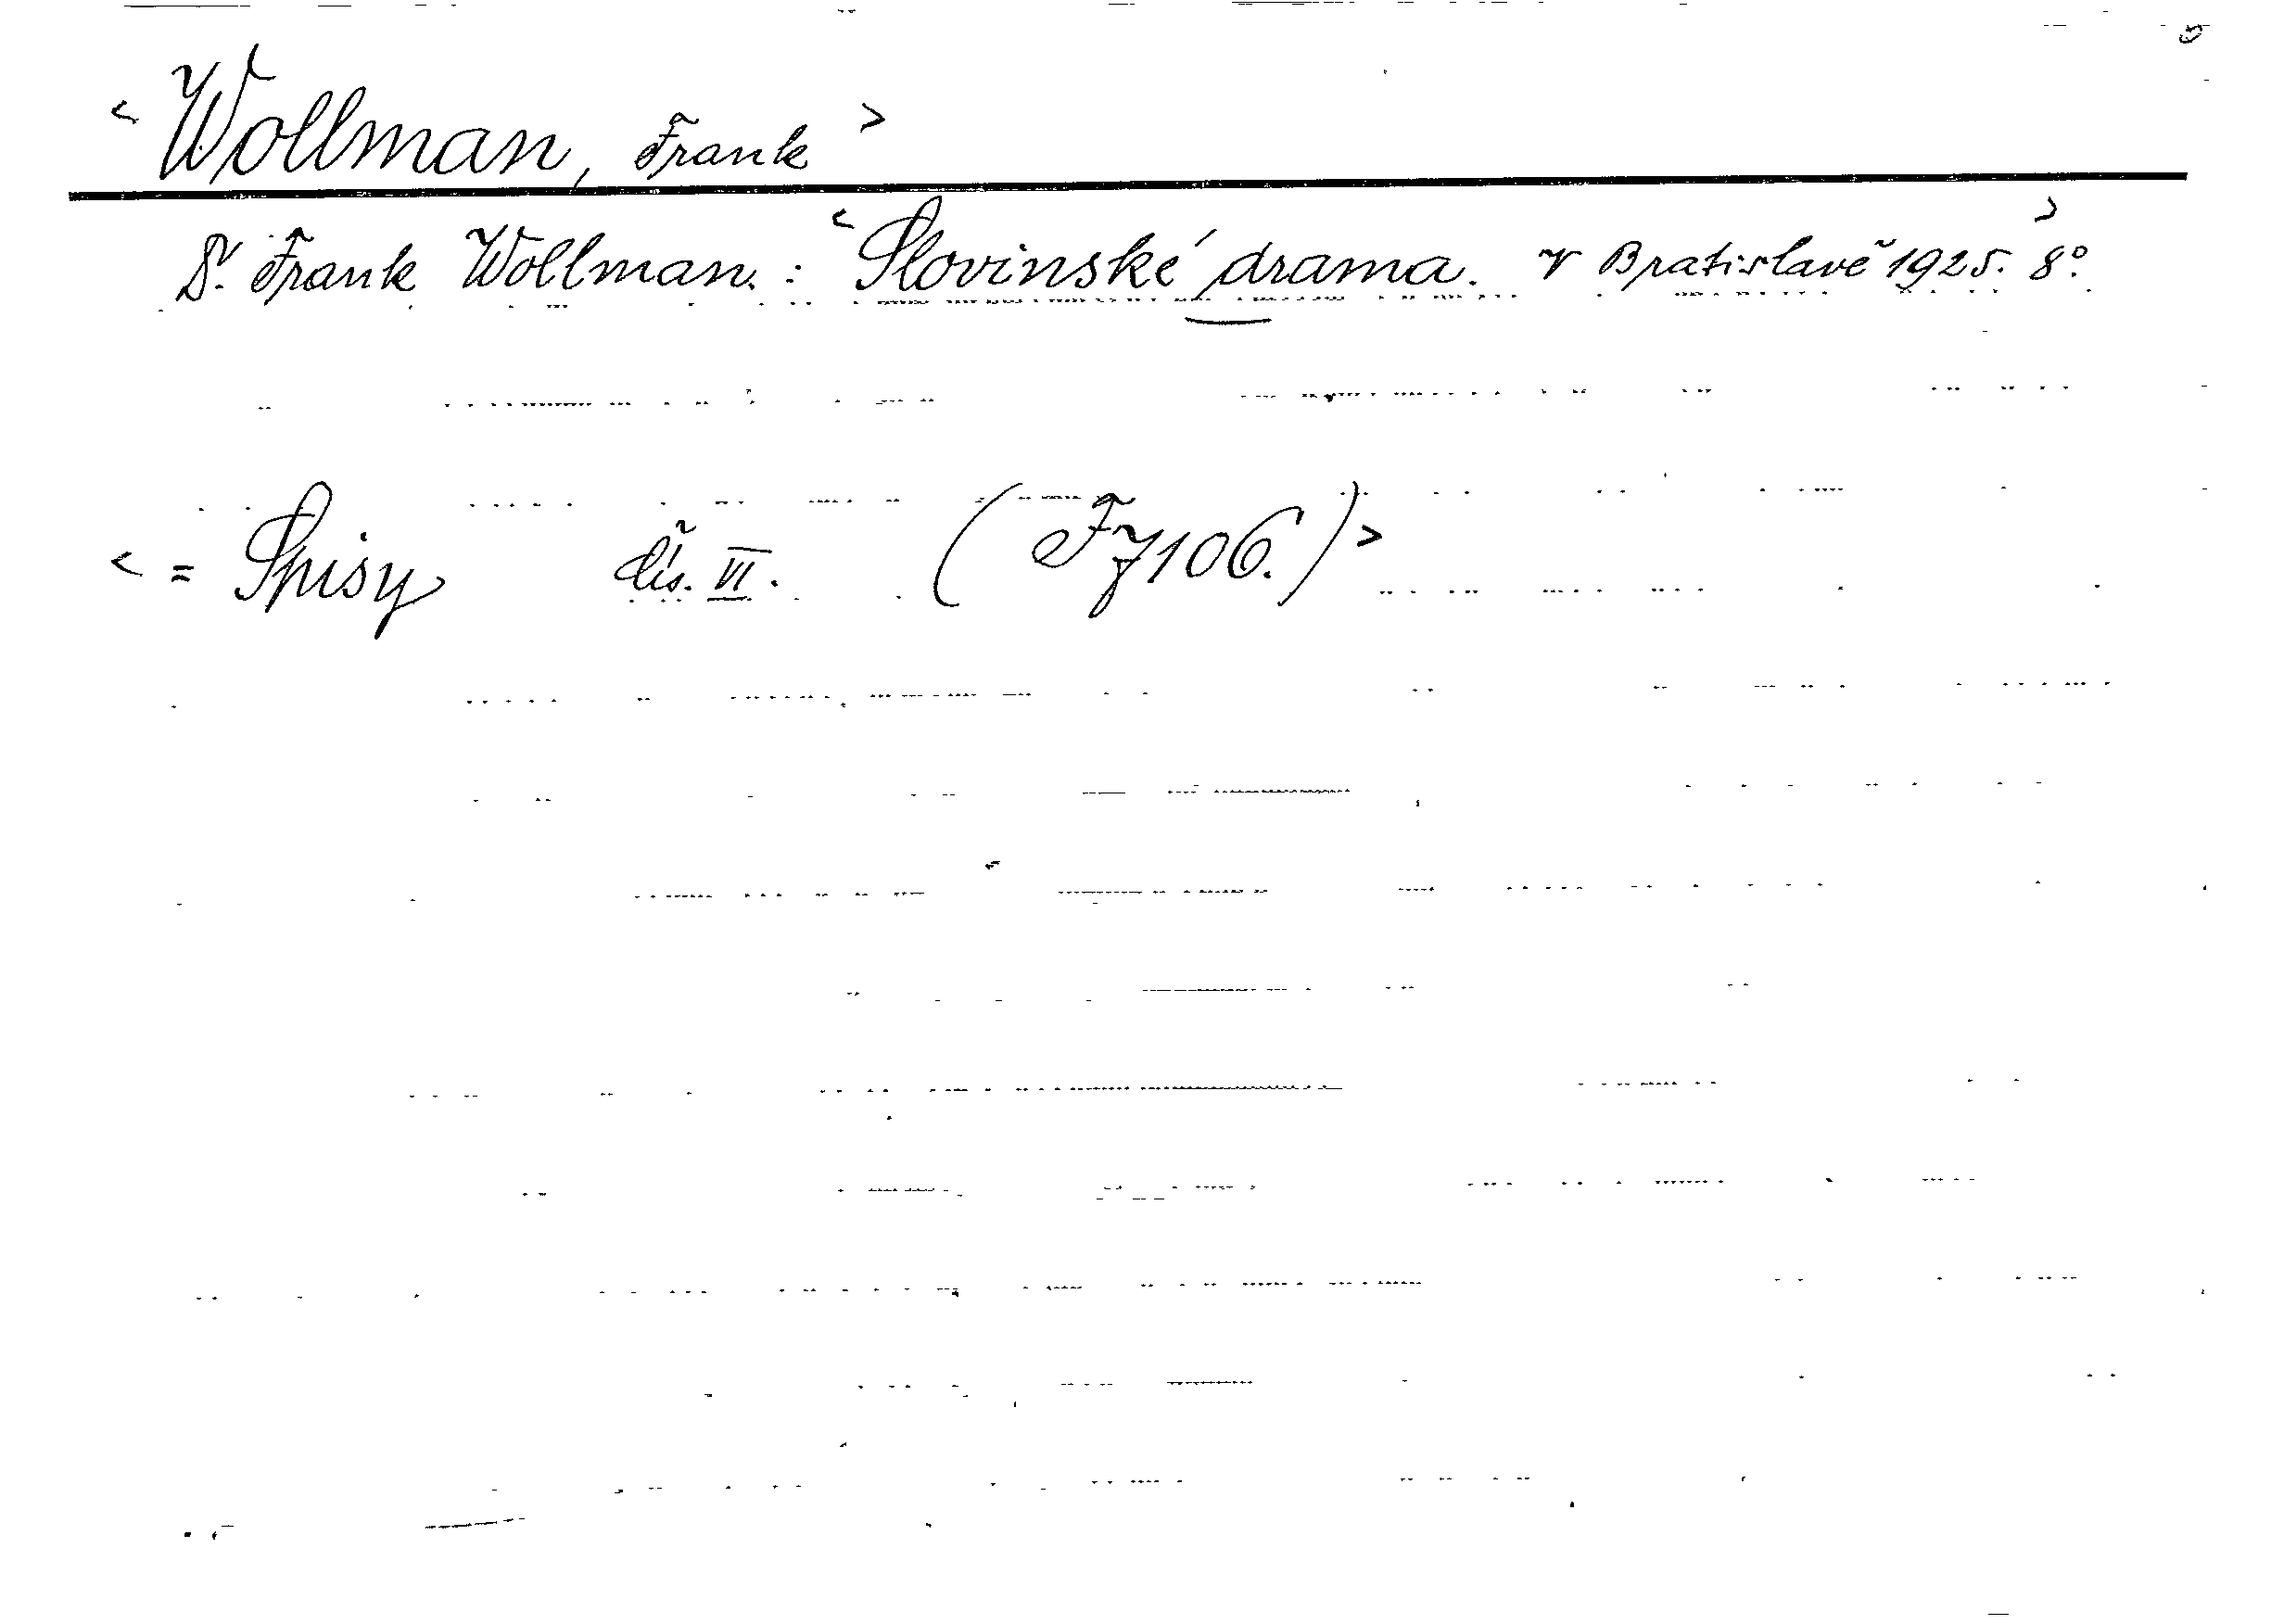 < Wollman, Frank >
Dr. Frank Wollman. : < Slovinské drama. V Bratislavě 1925. 8°. >
< = Spisy čís. VI. (F 7106.) >